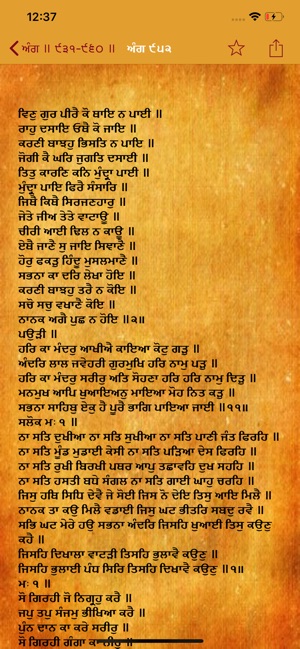 12:37
ਅੰਗ ॥ ੯੩੧-੯੬੦ ॥ ਅੰਗ ੯੫੨
ਵਿਣੁ ਗੁਰ ਪੀਰੈ ਕੋ ਥਾਇ ਨ ਪਾਈ ॥
ਰਾਹੁ ਦਸਾਇ ਓਥੈ ਕੋ ਜਾਇ ॥
ਕਰਣੀ ਬਾਝਹੁ ਭਿਸਤਿ ਨ ਪਾਇ ॥
ਜੋਗੀ ਕੈ ਘਰਿ ਜੁਗਤਿ ਦਸਾਈ ॥
ਤਿਤੁ ਕਾਰਣਿ ਕਨਿ ਮੁੰਦ੍ਰਾ ਪਾਈ ॥
ਮੁੰਦ੍ਰਾ ਪਾਇ ਫਿਰੈ ਸੰਸਾਰਿ ॥
ਜਿਥੈ ਕਿਥੈ ਸਿਰਜਣਹਾਰੁ ॥
ਜੇਤੇ ਜੀਅ ਤੇਤੇ ਵਾਟਾਊ ॥
ਚੀਰੀ ਆਈ ਢਿਲ ਨ ਕਾਊ ॥
ਏਥੈ ਜਾਣੈ ਸੁ ਜਾਇ ਸਿਞਾਣੈ ॥
ਹੋਰੁ ਫਕੜੁ ਹਿੰਦੂ ਮੁਸਲਮਾਣੈ ॥
ਸਭਨਾ ਕਾ ਦਰਿ ਲੇਖਾ ਹੋਇ ॥
ਕਰਣੀ ਬਾਝਹੁ ਤਰੈ ਨ ਕੋਇ ॥
ਸਚੋ ਸਚੁ ਵਖਾਣੈ ਕੋਇ ॥
ਨਾਨਕ ਅਗੈ ਪੁਛ ਨ ਹੋਇ ॥੨॥
ਪਉੜੀ ॥
ਹਰਿ ਕਾ ਮੰਦਰੁ ਆਖੀਐ ਕਾਇਆ ਕੋਟੁ ਗੜੁ ॥
ਅੰਦਰਿ ਲਾਲ ਜਵੇਹਰੀ ਗੁਰਮੁਖਿ ਹਰਿ ਨਾਮੁ ਪੜੁ ॥
ਹਰਿ ਕਾ ਮੰਦਰੁ ਸਰੀਰੁ ਅਤਿ ਸੋਹਣਾ ਹਰਿ ਹਰਿ ਨਾਮੁ ਦਿੜੁ ॥
ਮਨਮੁਖ ਆਪਿ ਖੁਆਇਅਨੁ ਮਾਇਆ ਮੋਹ ਨਿਤ ਕੜੁ ॥
ਸਭਨਾ ਸਾਹਿਬੁ ਏਕੁ ਹੈ ਪੂਰੈ ਭਾਗਿ ਪਾਇਆ ਜਾਈ ॥੧੧॥
ਸਲੋਕ ਮਃ ੧ ॥
ਨਾ ਸਤਿ ਦੁਖੀਆ ਨਾ ਸਤਿ ਸੁਖੀਆ ਨਾ ਸਤਿ ਪਾਣੀ ਜੰਤ ਫਿਰਹਿ ॥
ਨਾ ਸਤਿ ਮੂੰਡ ਮੁਡਾਈ ਕੇਸੀ ਨਾ ਸਤਿ ਪੜਿਆ ਦੇਸ ਫਿਰਹਿ ॥
ਨਾ ਸਤਿ ਰੁਖੀ ਬਿਰਖੀ ਪਥਰ ਆਪੁ ਤਛਾਵਹਿ ਦੁਖ ਸਹਹਿ ॥
ਨਾ ਸਤਿ ਹਸਤੀ ਬਧੇ ਸੰਗਲ ਨਾ ਸਤਿ ਗਾਈ ਘਾਹੁ ਚਰਹਿ ॥
ਜਿਸੁ ਹਥਿ ਸਿਧਿ ਦੇਵੈ ਜੇ ਸੋਈ ਜਿਸ ਨੋ ਦੇਇ ਤਿਸੁ ਆਇ ਮਿਲੈ ॥
ਨਾਨਕ ਤਾ ਕਉ ਮਿਲੈ ਵਡਾਈ ਜਿਸੁ ਘਟ ਭੀਤਰਿ ਸਬਦੁ ਰਵੈ ॥
ਸਭਿ ਘਟ ਮੇਰੇ ਹਉ ਸਭਨਾ ਅੰਦਰਿ ਜਿਸਹਿ ਖੁਆਈ ਤਿਸੁ ਕਉਣੁ
ਕਹੈ ॥
ਜਿਸਹਿ ਦਿਖਾਲਾ ਵਾਟੜੀ ਤਿਸਹਿ ਭੁਲਾਵੈ ਕਉਣੁ ॥
ਜਿਸਹਿ ਭੁਲਾਈ ਪੰਧ ਸਿਰਿ ਤਿਸਹਿ ਦਿਖਾਵੈ ਕਉਣੁ ॥੧॥
ਮਃ ੧ ॥
ਸੋ ਗਿਰਹੀ ਜੋ ਨਿਗ੍ਰਹੁ ਕਰੈ ॥
ਜਪੁ ਤਪੁ ਸੰਜਮੁ ਭੀਖਿਆ ਕਰੈ ॥
ਪੁੰਨ ਦਾਨ ਕਾ ਕਰੇ ਸਰੀਰੁ ॥
ਸੋ ਗਿਰਹੀ ਗੰਗਾ ਕਾ ਨੀਰੁ ॥